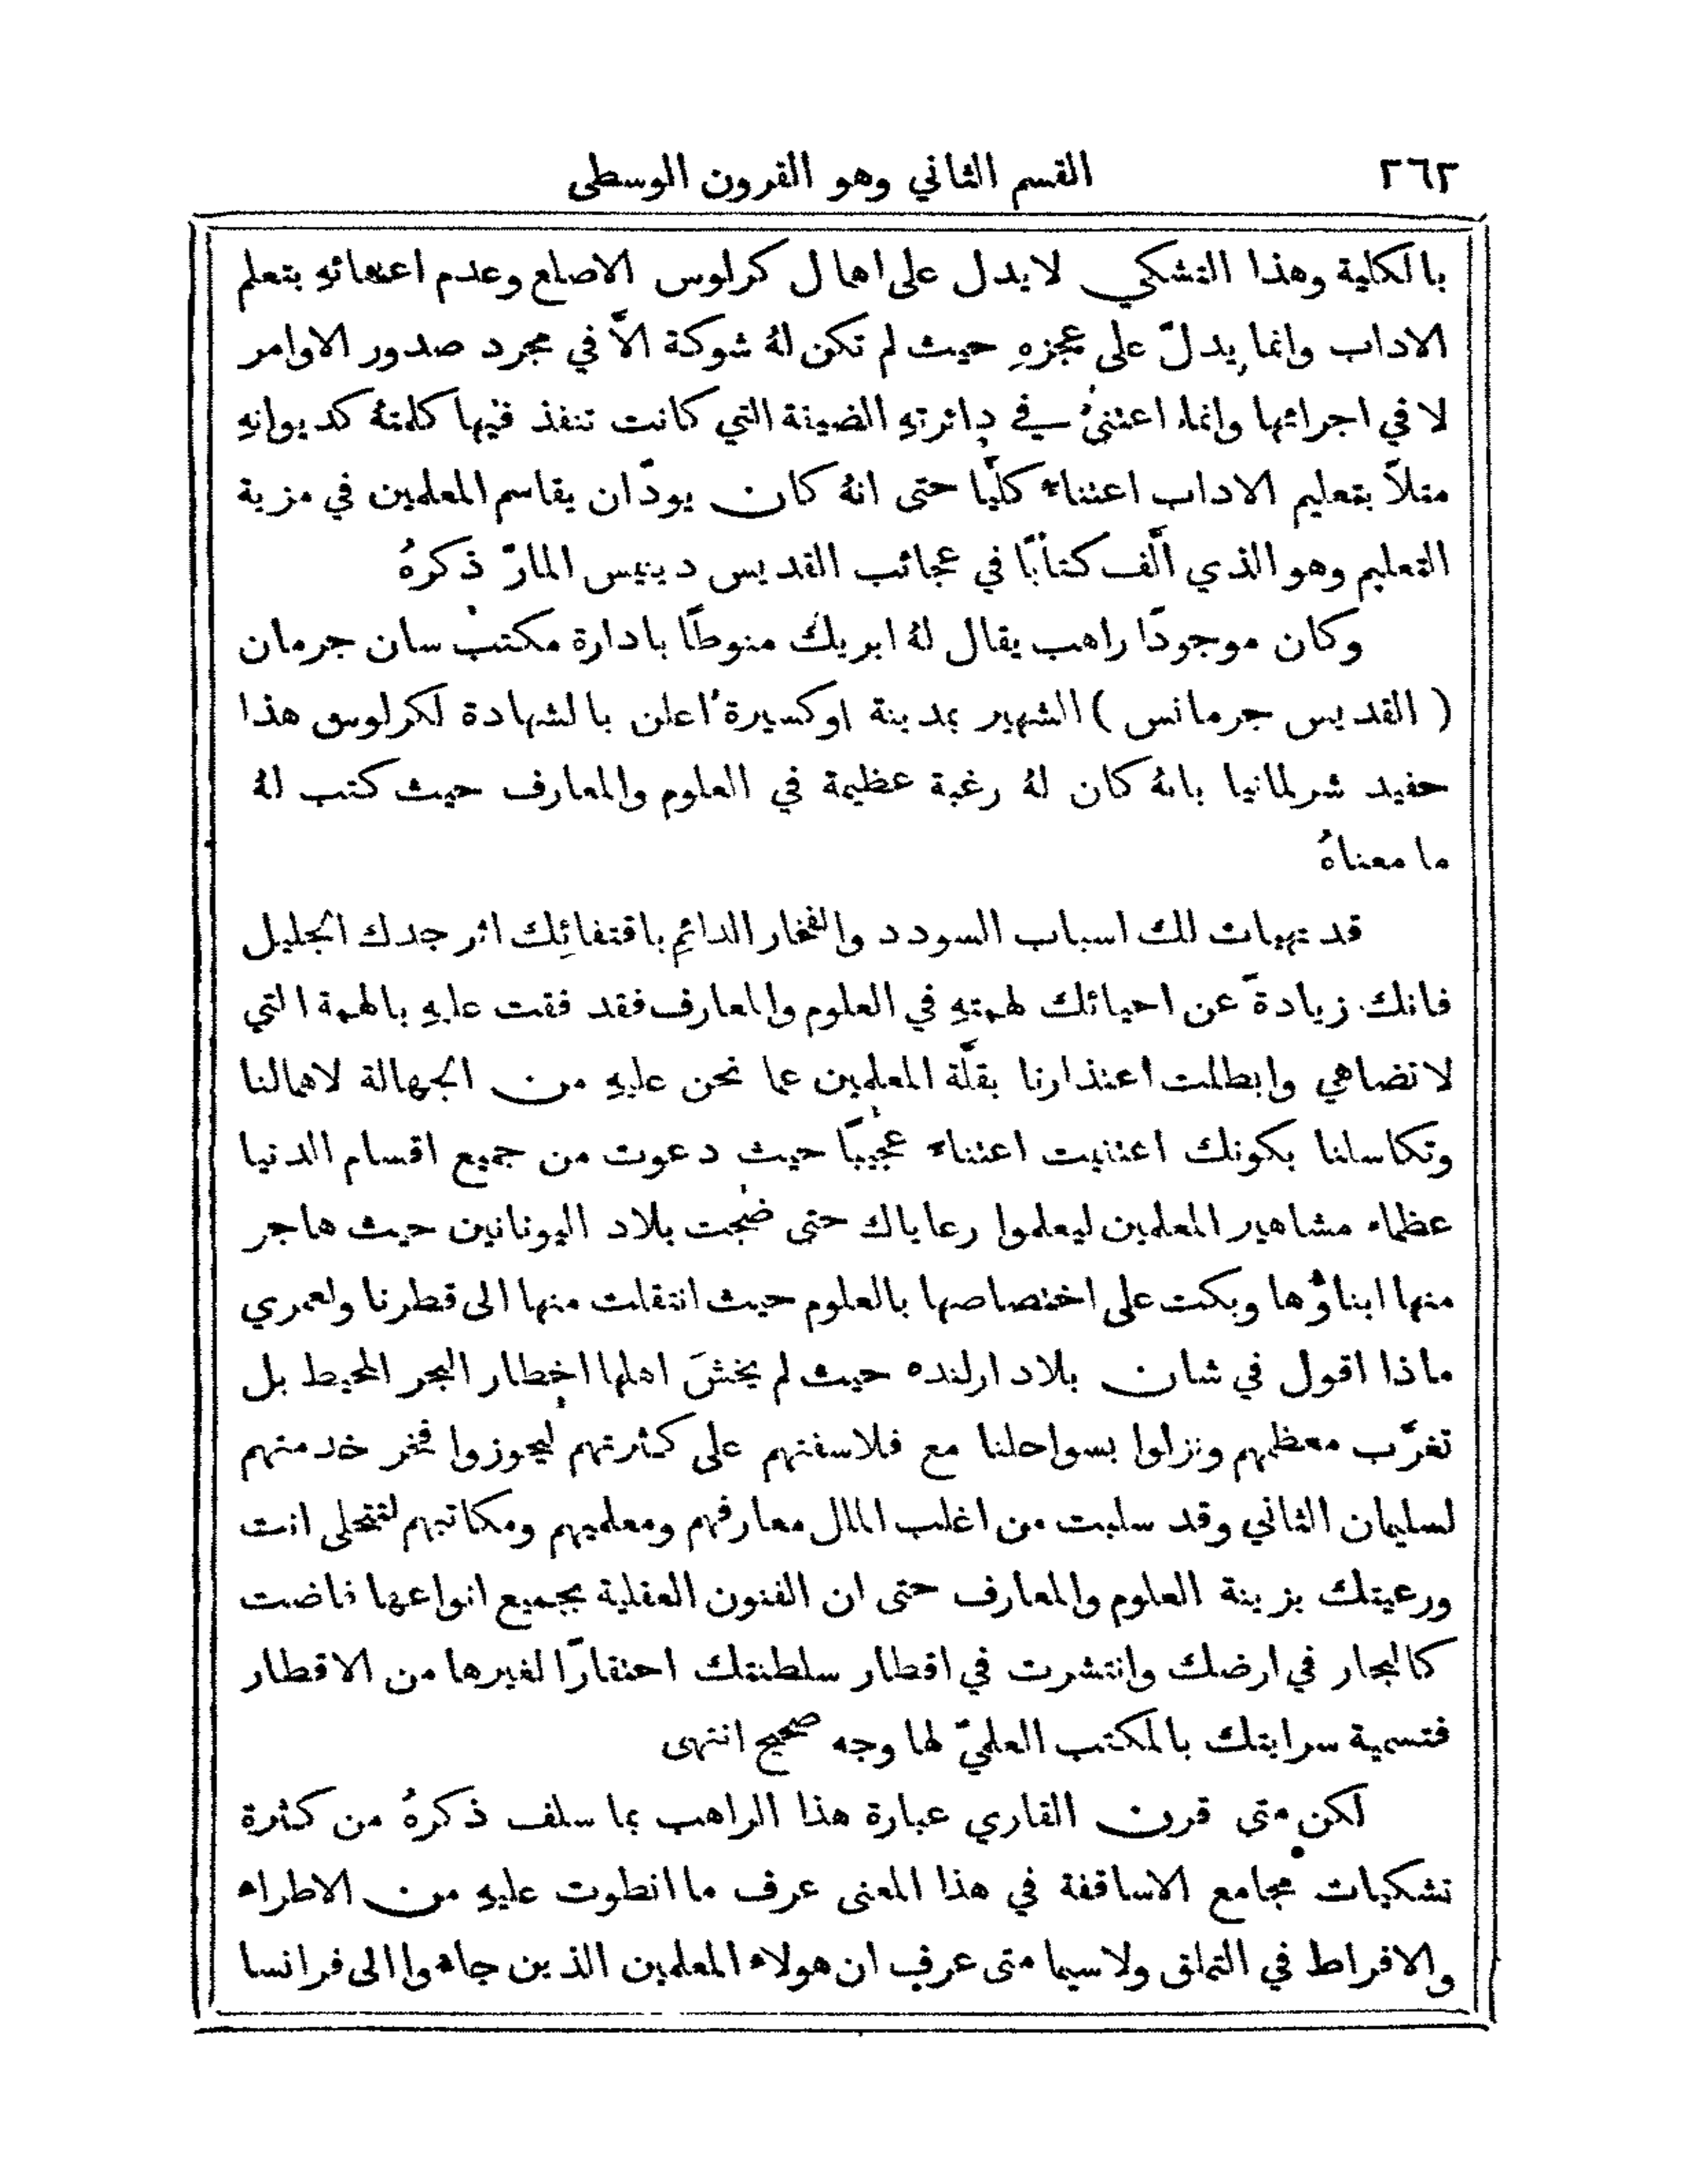 ٢٦٢
القسم الثاني وهو القرون الوسطى
بالكلية وهذا التشكي لا يدل على اهمال كرلوس الاصلع وعدم اعتنائهِ بتعلم
الاداب وانما يدلّ على عجزهِ حيث لم تكن لهُ شوكة الاَّ في مجرد صدور الاوامر
لا في اجرائها وانما اعتنى في دائرتهِ الضيقة التي كانت تنفذ فيها كلمتهُ كديوانهِ
مثلاً بتعليم الاداب اعتناء كليًّا حتى انهُ كان يودّ ان يقاسم المعلمين في مزية
التعليم وهو الذي الَّف كتابًا في عجائب القديس دينيس المارّ ذكرهُ
وكان موجودًا راهب يقال لهُ ابريك منوطًا بادارة مكتب سان جرمان
( القديس جرمانس ) الشهير بمدينة اوكسيرة اعلن بالشهادة لكرلوس هذا
حفيد شرلمانيا بانهُ كان لهُ رغبة عظيمة في العلوم والمعارف حيث كتب لهُ
ما معناهُ
قد تهيات لك اسباب السودد والفخار الدائم باقتفائك اثر جدك الجليل
فانك زيادةً عن احيائك لهمتهِ في العلوم والمعارف فقد فقت عليهِ بالهمة التي
لا تضاهي وابطلت اعتذارنا بقلَّة المعلمين عما نحن عليهِ من الجهالة لاهمالنا
وتكاسلنا بكونك اعتنيت اعتناء عجيبًا حيث دعوت من جميع اقسام الدنيا
عظماء مشاهير المعلمين ليعلموا رعاياك حتى ضجت بلاد اليونانين حيث هاجر
منها ابناؤُها وبكت على اختصاصها بالعلوم حيث انتقلت منها الى قطرنا ولعمري
ماذا اقول في شان بلاد ارلنده حيث لم يخشَ اهلها اخطار البحر المحيط بل
تغرَّب معظمهم ونزلوا بسواحلنا مع فلاسفتهم على كثرتهم ليحوزوا فخر خدمتهم
لسليمان الثاني وقد سلبت من اغلب الملل معارفهم ومعلميهم ومكاتبهم لتتحلى انت
ورعيتك بزينة العلوم والمعارف حتى ان الفنون العقلية بجميع انواعها فاضت
كالبحار في ارضك وانتشرت في اقطار سلطنتك احتقارًا لغيرها من الاقطار
فتسمية سرايتك بالمكتب العلميّ لها وجه صحيح انتهى
لكن متى قرن القاري عبارة هذا الراهب بما سلف ذكرهُ من كثرة
تشكيات مجامع الاساقفة في هذا المعنى عرف ما انطوت عليهِ من الاطراء
والافراط في التملق ولا سيما متى عرف ان هولاء المعلمين الذين جاءوا الى فرانسا